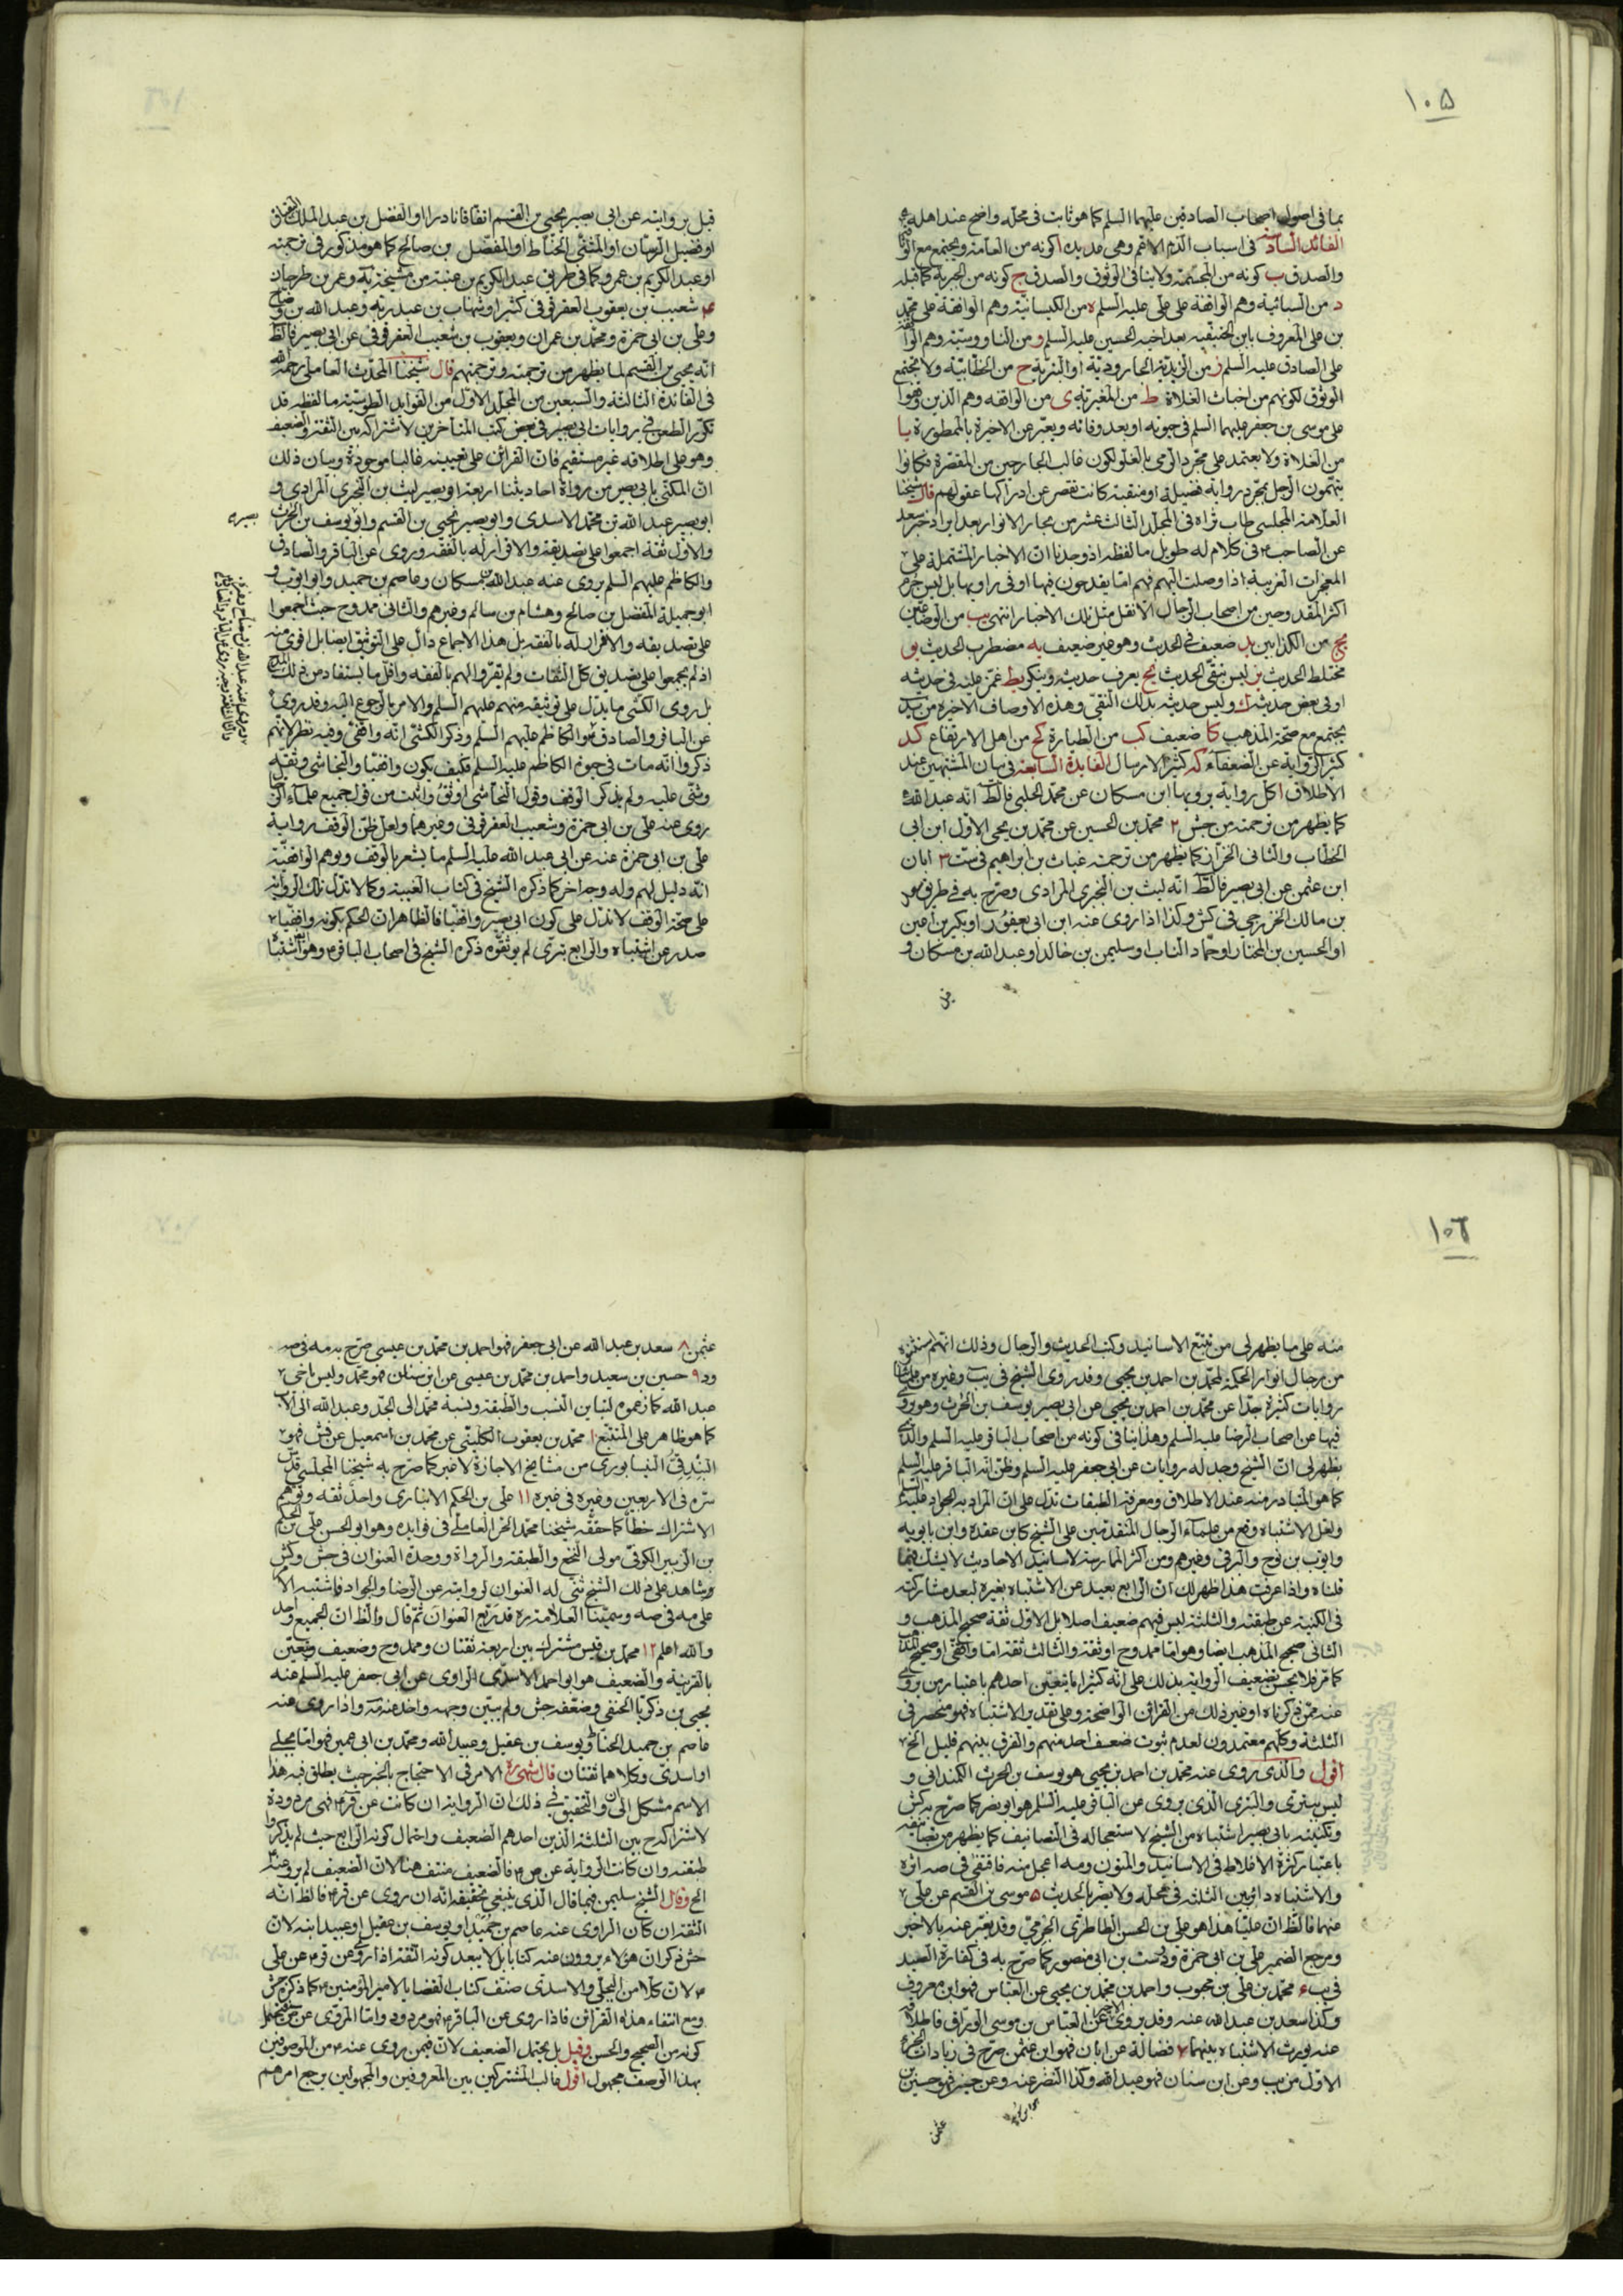 ١٠۵
بما فى اصول اصحاب الصادقين عليهما السلم كما هو ثابت فى محله واضح عند اهله
الفائدة السادسة فى اسباب الذم الاعم وهى عديدة ا كونه من العامة ويجتمع مع
والصدق ب كونه من المجسمة ولا ينافى الوثوق والصدق ج كونه من الجبرية كما قبله
د من السبائية وهم الواقفة على على عليه السلم ه من الكيسانية وهم الواقفة على محمد
بن على المعروف بابن الحنفية بعد اخيه الحسين عليه السلم و من الناووسية وهم
على الصادق عليه السلم ز من الزيدية الجارودية او البترية ح من الخطابية ولا يجتمع
الوثوق لكونهم من اخباث الغلاة ط من المغيرية ى من الواقفه وهم الذين وقفوا
على موسى بن جعفر عليهما السلم فى حيوته او بعد وفاته ويعبر عن الاخيرة بالممطورة يا
من الغلاة ولا يعتمد على مجرد الرمى بالغلو لكون غالب الجارحين من المقصرة فكانوا
يتهمون الرجل بمجرد رواية فضيلة او منقبة كانت تقصر عن ادراكها عقولهم قال شيخنا
العلامة المجلسى طاب ثراه فى المجلد الثالث عشر من بحار الانوار بعد ايراد خبر سعد
عن الصاحب ع فى كلام له طويل ما لفظه اذ وجدنا ان الاخبار المشتملة على
المعجزات الغريبة اذا وصلت اليهم فهم اما يقدحون فيها او فى راويها بل ليس جرم
اكثر المقدوحين من اصحاب الرجال الا نقل مثل تلك الاخبار انتهى يب من الوضاعين
يج من الكذابين يد ضعيف فى الحديث وهو غير ضعيف يه مضطرب الحديث يو
مختلط الحديث يز ليس بنقى الحديث يح يعرف حديثه وينكر يط غمز عليه فى حديثه
او فى بعض حديثه ك وليس حديثه بذلك النقى وهذه الاوصاف الاخيرة من يد
يجتمع مع صحة المذهب كا ضعيف كب من الطيارة كج من اهل الارتفاع كد
كثير الرواية عن الضعفاء كه كثير الارسال الفايدة السابعة فى بيان المشتبهين عند
الاطلاق ا كل رواية يرويها ابن مسكان عن محمد الحلبى فالظ انه عبد الله
كما يظهر من ترجمته من جش ٢ محمد بن الحسين عن محمد بن يحيى الاول ابن ابى
الخطاب والثانى الخزاز كما يظهر من ترجمة غياث بن ابراهيم فى ست ٣ ابان
ابن عثمن عن ابى بصير فالظ انه ليث بن البخترى المرادى وصرح به فى طريق
بن مالك الخزرجى فى كش وكذا اذا روى عنه ابن ابى يعفور او بكير بن اعين
او الحسين بن المختار او حماد الناب او سليمن بن خالد او عبد الله بن مسكان و
قبل بروايته عن ابى بصير يحيى بن القسم اتفاقا نادرا او الفضل بن عبد الملك
او فضيل الرسان او المثنى الحناط او المفضل بن صالح كما هو مذكور فى ترجمته
او عبد الكريم بن عمرو كما فى طريق عبد الكريم بن عتبة من مشيخة يه وعمر بن طرحان
٤ شعيب بن يعقوب العقرقوفى كثيرا وشهاب بن عبد ربه وعبد الله بن وضاح
وعلى بن ابى حمزة ومحمد بن عمران ويعقوب بن شعيب العقرقوفى عن ابى بصير فالظ
انه يحيى بن القسم لما يظهر من ترجمته وترجمتهم قال شيخنا المحدث العاملى رحمه الله
فى الفائدة الثالثة والسبعين من المجلد الاول من الفوايد الطوسية ما لفظه قد
تكرر الطعن فى روايات ابى بصير فى بعض كتب المتاخرين لاشتراكه بين الثقة والضعيف
وهو على اطلاقه غير مستقيم فان القراين على تعيينه غالبا موجودة وبيان ذلك
ان المكنى بابى بصير من رواة احاديثنا اربعة ابو بصير ليث بن البخترى المرادى و
ابو بصير عبد الله بن محمد الاسدى وابو بصير يحيى بن القسم وابو يوسف بن الحرث
بصير
والاول ثقة اجمعوا على تصديقه والاقرار له بالفقه وروى عن الباقر والصادق
والكاظم عليهم السلم يروى عنه عبد الله بن مسكان وعاصم بن حميد وابو ايوب و
ابو جميلة المفضل بن صالح وهشام بن سالم وغيرهم والثانى ممدوح حيث اجمعوا
على تصديقه والاقرار له بالفقه بل هذا الاجماع دال على التوثيق ايضا بل اقوى منه
اذ لم يجمعوا على تصديق كل الثقات ولم يقروا لهم بالفقه واقل ما يستفاد من ذلك المدح
بل روى الكشى ما يدل على توثيقه منهم عليهم السلم والامر بالرجوع اليه وقد روى
عن الباقر والصادق والكاظم عليهم السلم وذكر الكشى انه واقفى وفيه نظر لانهم
ذكروا انه مات فى حيوة الكاظم عليه السلم فكيف يكون واقفيا والنجاشى وثقه
واثنى عليه ولم يذكر الوقف وقول النجاشى اوثق واثبت من قول جميع علماء الرجال
روى عنه على بن ابى حمزة وشعيب العقرقوفى وغيرهما ولعل ظن الوقف رواية
على بن ابى حمزة عنه عن ابى عبد الله عليه السلم ما يشعر بالوقف ويوهم الواقفية
انه دليل لهم وله وجه اخر كما ذكره الشيخ فى كتاب الغيبة وكما لا تدل تلك الرواية
على صحة الوقف لا تدل على كون ابى بصير واقفيا فالظاهر ان الحكم بكونه واقفيا
صدر عن اشتباه والرابع بترى لم يوثقوه ذكره الشيخ فى اصحاب الباقر ع وهو اشتباه
١٠٦
منه على ما يظهر لى من تتبع الاسانيد وكتب الحديث والرجال وذلك انهم
من رجال نوادر الحكمة لمحمد بن احمد بن يحيى وقد روى الشيخ فى يب وغيره من
روايات كثيرة جدا عن محمد بن احمد بن يحيى عن ابى بصير يوسف بن الحرث وهو
فيها عن اصحاب الرضا عليه السلم وهذا ينافى كونه من اصحاب الباقر عليه السلم والذى
يظهر لى ان الشيخ وجد له روايات عن ابى جعفر عليه السلم وظن انه الباقر عليه السلم
كما هو المتبادر منه عند الاطلاق ومعرفة الطبقات تدل على ان المراد به الجواد عليه السلم
ولعل الاشتباه وقع من علماء الرجال المتقدمين على الشيخ كابن عقدة وابن بابويه
وايوب بن نوح والبرقى وغيرهم ومن اكثر الممارسة لاسانيد الاحاديث لا يشك فيما
قلناه واذا عرفت هذا ظهر لك ان الرابع بعيد عن الاشتباه بغيره لبعد مشاركته
فى الكنية عن طبقته والثلثة ليس فيهم ضعيف اصلا بل الاول ثقة صحيح المذهب و
الثانى صحيح المذهب ايضا وهو اما ممدوح او ثقة والثالث ثقة اما واقفى او صحيح المذهب
كما مر فلا يحسن تضعيف الرواية بذلك على انه كثيرا ما يتعين احدهم باعتبار من روى
عنه ممن ذكرناه او غير ذلك من القرائن الواضحة وعلى تقدير الاشتباه فهو منحصر فى
الثلثة وكلهم معتمدون لعدم ثبوت ضعيف احد منهم والفرق بينهم قليل الخ
اقول والذى روى عنه محمد بن احمد بن يحيى هو يوسف بن الحرث الكمندانى و
ليس ببترى والبترى الذى يروى عن الباقر عليه السلم هو ابو نصر كما صرح به كش
وتكنيته بابى بصير اشتباه من الشيخ لاستعجاله فى التصانيف كما يظهر من تصانيفه
باعتبار كثرة الاغلاط فى الاسانيد والمتون ومه اعجل منه فاقتفى فى صه اثره
والاشتباه دائر بين الثلثة فى محله ولا يضر بالحديث ۵ موسى بن القسم عن على
عنهما فالظ ان عليا هذا هو على بن الحسن الطاطرى الجرمى وقد يعبر عنه بالاخير
ومرجع الضمير على بن ابى حمزة ودرست بن ابى منصور كما صرح به فى كفارة الصيد
فى يب ٦ محمد بن على بن محبوب واحمد بن محمد بن يحيى عن العباس فهو ابن معروف
وكذا سعد بن عبد الله عنه وقد يروى عن العباس بن موسى الوراق فاطلاقه
عنه يورث الاشتباه بينهما ٧ فضالة عن ابان فهو ابن عثمن صرح فى زيادات الجزء
الاول من يب وعن ابن سنان فهو عبد الله وكذا النضر عنه وعن حسين فهو حسين بن
عثمن
عثمن ٨ سعد بن عبد الله عن ابى جعفر فهو احمد بن محمد بن عيسى صرح به مه فى صه
ود ٩ حسين بن سعيد واحمد بن محمد بن عيسى عن ابن سنان فهو محمد وليس باخى
عبد الله كما زعموه لتباين النسب والطبقة ونسبة محمد الى الجد وعبد الله الى الاب
كما هو ظاهر على المتتبع ١٠ محمد بن يعقوب الكلينى عن محمد بن اسمعيل عن فش فهو
البندقى النيسابورى من مشايخ الاجازة لا غير كما صرح به شيخنا المجلسى قدس
سره فى الاربعين وغيره فى غيره ١١ على بن الحكم الانبارى واحد ثقة وتوهم
الاشتراك خطأ كما حققه شيخنا محمد الحر العاملى فى فوايده وهو ابو الحسن على بن الحكم
بن الزبير الكوفى مولى النخع والطبقة والرواة ووحدة العنوان فى جش وكش
وشاهد على ذلك الشيخ ثنى له العنوان لروايته عن الرضا والجواد فاشتبه الامر
على مه فى صه وسمينا العلامة ره قد ربع العنوان ثم قال والظ ان الجميع واحد
والله اعلم ١٢ محمد بن قيس مشترك بين اربعة ثقتان وممدوح وضعيف ويتعين
بالقرينة والضعيف هو ابو احمد الاسدى الراوى عن ابى جعفر عليه السلم عنه
يحيى بن زكريا الحنفى وضعفه جش ولم يبين وجهه واخذ عنه مه واذا روى عنه
عاصم بن حميد الحناط ويوسف بن عقيل وعبيد الله ومحمد بن ابى عمير فهو اما بجلى
او اسدى وكلاهما ثقتان قال شهيد ره الامر فى الاحتجاج بالخبر حيث يطلق فيه هذا
الاسم مشكل الى ان والتحقيق فى ذلك ان الرواية ان كانت عن قر ع فهى مردودة
لاشتراكه ح بين الثلثة الذين احدهم الضعيف واحتمال كونه الرابع حيث لم يذكروا
طبقته وان كانت الرواية عن ص ع فالضعيف منتف هنا لان الضعيف لم يرو عنه
الخ وقال الشيخ سليمن فيما قال الذى ينبغى تحقيقه انه ان روى عن قر ع فالظ انه
الثقة ان كان الراوى عنه عاصم بن حميد او يوسف بن عقيل او عبيد ابنه لان
جش ذكر ان هؤلاء يروون عنه كتابا بل لا يبعد كونه الثقة اذا روى عن قر ع عن على
ع لان كلا من البجلى والاسدى صنف كتاب القضايا لامير المؤمنين ع كما ذكره جش
ومع انتفاء هذه القرائن فاذا روى عن الباقر ع فهو مردود واما المروى عن ص فيحتمل
كونه من الصحيح والحسن وقيل بل يحتمل الضعيف لان فيمن يروى عنه ع من الموصوفين
بهذا الوصف مجهول اقول غالب المشتركين بين المعروفين والمجهولين يرجع امرهم